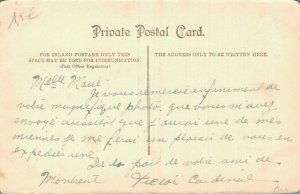 15€
Private Postal Card.
FOR INLAND POSTAGE ONLY THIS
SPACE MAY BE USED FOR COMMUNICATION.
(Post Office Regulation)
THE ADDRESS ONLY TO BE WRITTEN HERE.
Melle
Je vous remercie infiniment de
votre magnifique photo, que vous m'avez
envoyé aussitôt que j'aurai une de mes
miennes je me ferai un plaisir de vous en
expedier une.
De la part de votre ami de
Montreal Victor Cardinal